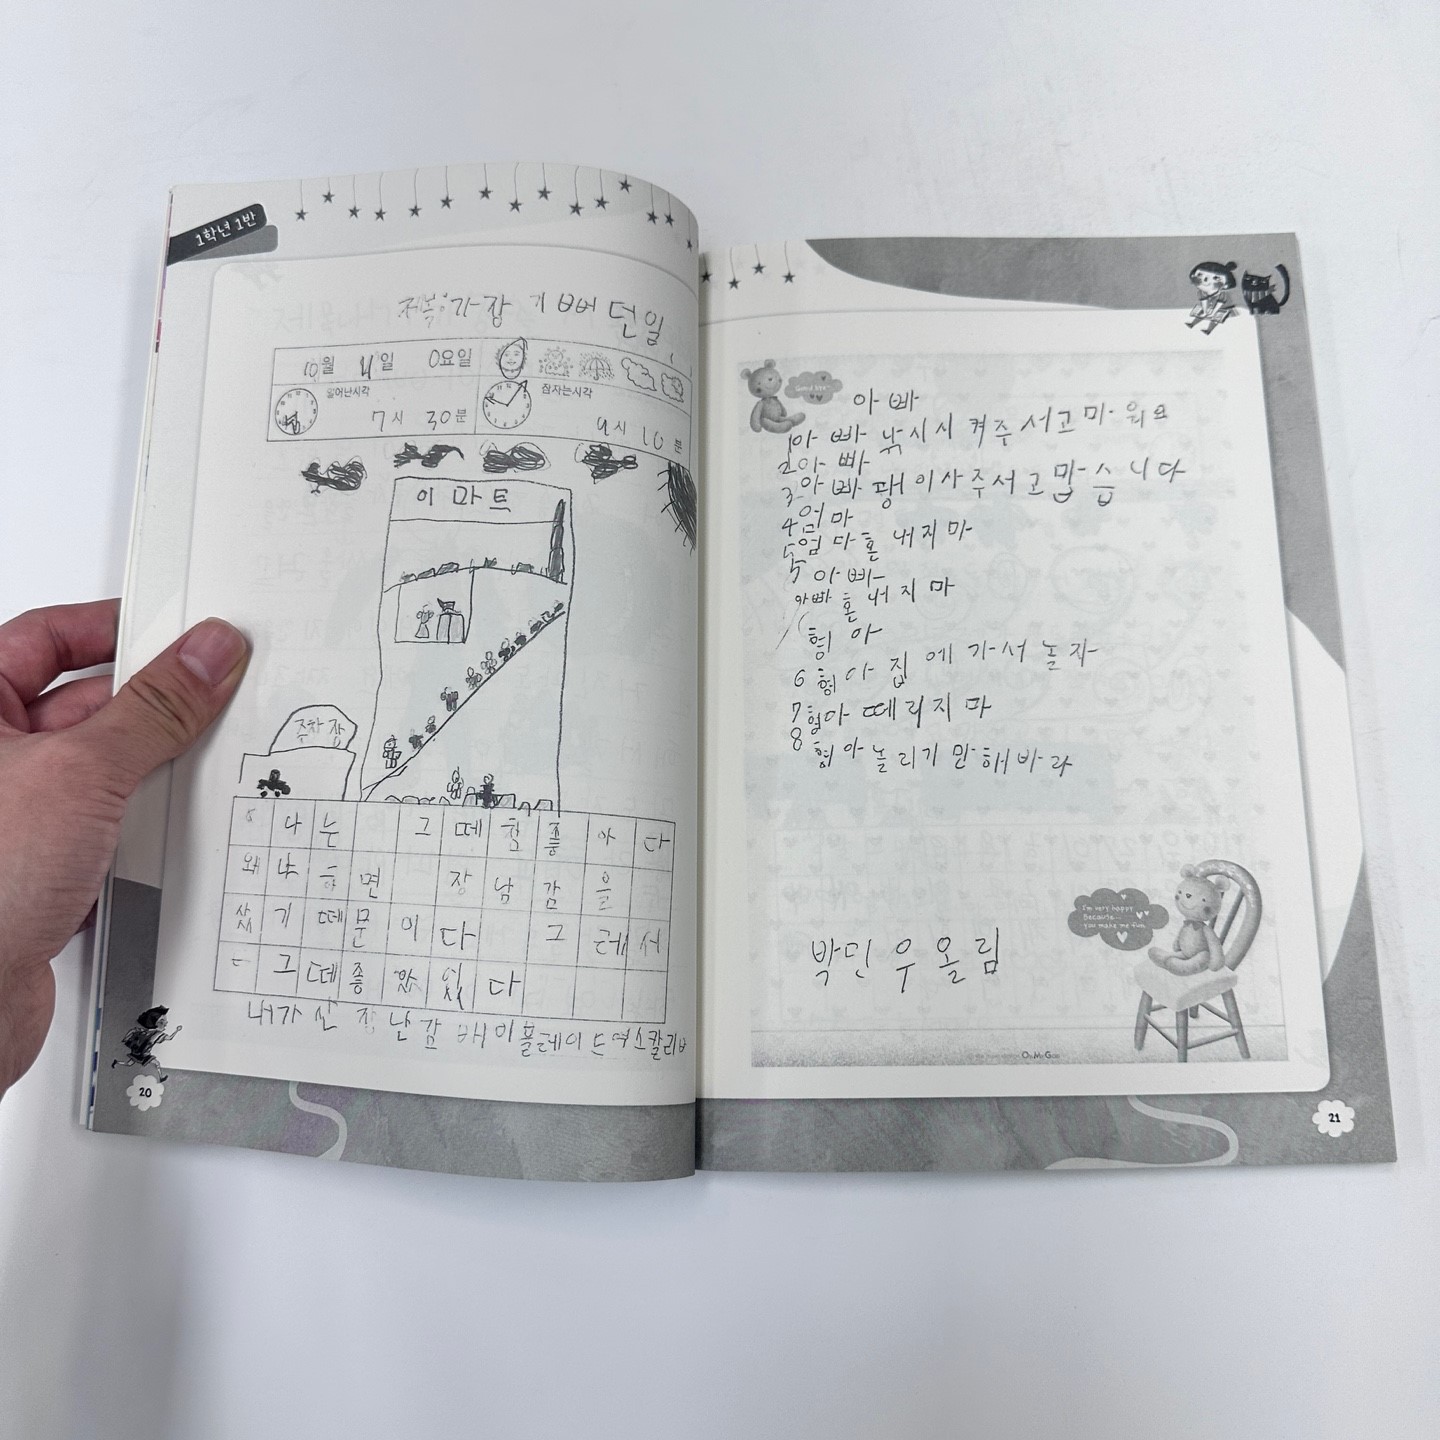 1학년 1반
가장 기뻐던일
10월 11일 0요일
일어난시각 잠자는시각
7시 30분 9시 10분
이마트
주차장
나는 그때 참 좋아다
왜냐하면 장남감을
샀기 때문이다 그레서
그때 좋았었다
내가 산 장난감 배이블레이드 엑스칼리버
20
Good bye~
아빠
1 아빠 낚시시켜주서고마워요
2 아빠
3 아빠 팽이사주서고맙습니다
4 엄마
5 엄마혼내지마
5 아빠
아빠 혼내지마
형아
6 형아집에가서놀자
7 형아 때리지마
8 형아놀리기만해바라
I'm very happy
Because...
you make me fun.
박민우올림
21